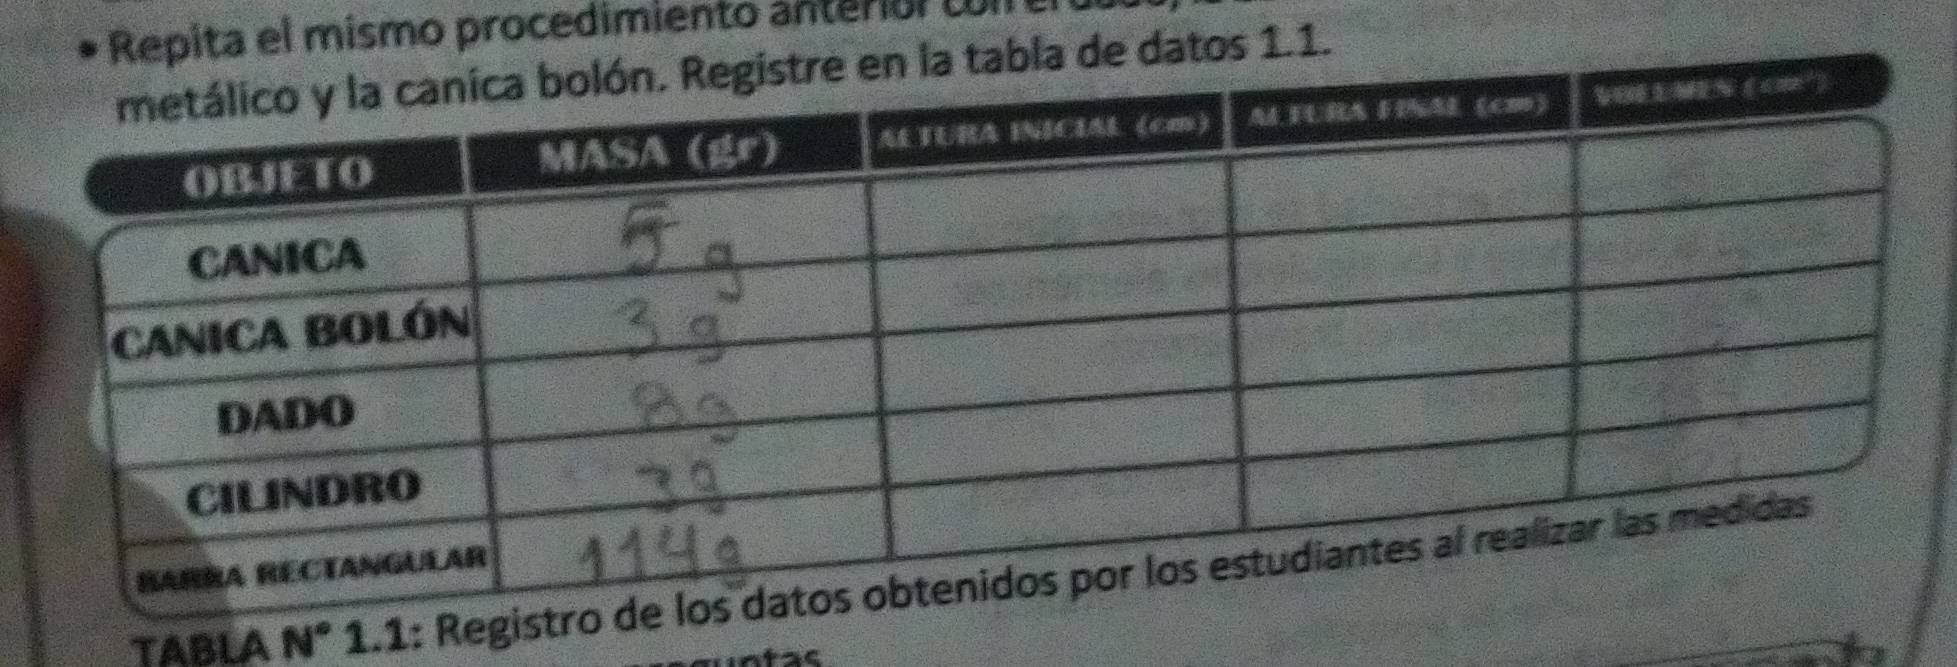 • Repita el mismo procedimiento anterior con el
metálico y la canica bolón. Registre en la tabla de datos 1.1.
OBJETO MASA (gr) ALTURA INICIAL (cm) ALTURA FINAL (cm) VOLUMEN (cm³)
CANICA 5 g
CANICA BOLÓN 3 g
DADO 8 g
CILINDRO 3 g
BARRA RECTANGULAR 114 g
TABLA N° 1.1: Registro de los datos obtenidos por los estudiantes al realizar las medidas